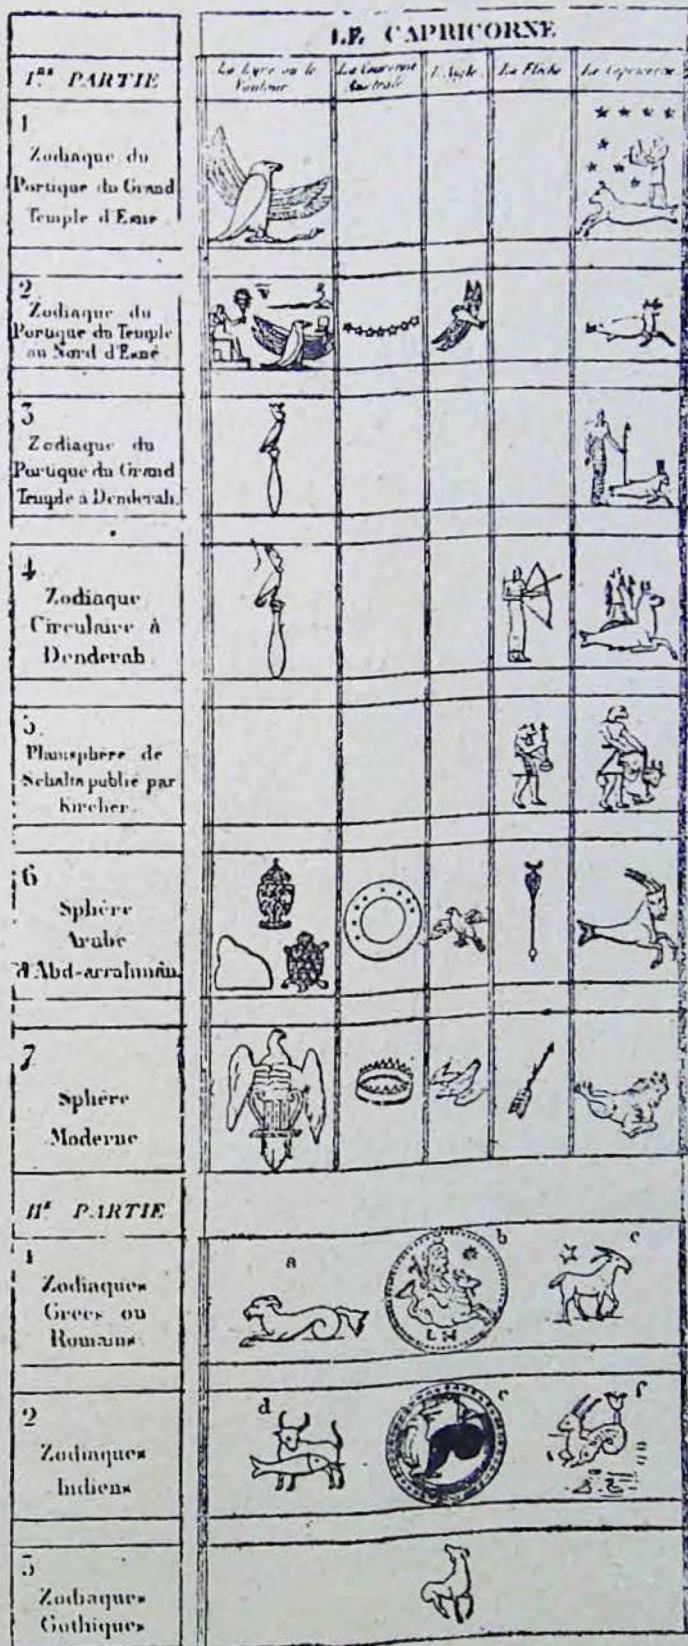 LE CAPRICORNE
I.re PARTIE
La Lyre ou le
Vautour
La Couronne
Australe
L'Aigle
La Flèche
Le Capricorne
1
Zodiaque du
Portique du Grand
Temple d'Esné
2
Zodiaque du
Portique du Temple
au Nord d'Esné
3
Zodiaque du
Portique du Grand
Temple à Denderah.
4
Zodiaque
Circulaire à
Denderah
5.
Planisphère de
publié par
Kircher.
6
Sphère
Arabe
d'Abd-arrahmân
7
Sphère
Moderne
II.e PARTIE
1
Zodiaques
Grecs ou
Romains
a
b
c
2
Zodiaques
Indiens
d
e
f
3
Zodiaques
Gothiques